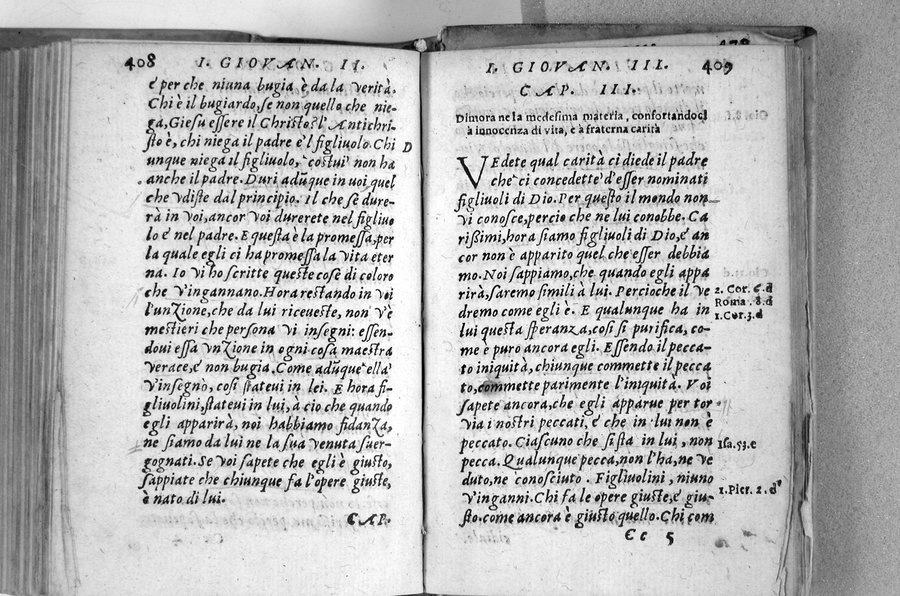 408 I. GIOVAN. II.
e per che niuna bugia è da la verità.
Chi è il bugiardo, se non quello che nie-
ga, Giesu essere il Christo? l'Antichri-
sto è, chi niega il padre e'l figliuolo. Chi D
unque niega il figliuolo, costui non ha
anche il padre. Duri adũque in voi quel
che vdiste dal principio. Il che se dure-
rà in voi, ancor voi durerete nel figliuo
lo e nel padre. E questa è la promessa, per
la quale egli ci ha promessa la vita eter
na. Io vi ho scritte queste cose di coloro
che v'ingannano. Hora restando in voi
l'unzione, che da lui riceueste, non v'è
mestieri che persona vi insegni: essen-
doui essa vnzione in ogni cosa maestra
verace, e non bugia. Come adũque ella
v'insegnò, così stateui in lei. E hora fi-
gliuolini, stateui in lui, à cio che quando
egli apparirà, noi habbiamo fidanza,
ne siamo da lui ne la sua venuta suer-
gognati. Se voi sapete che egli è giusto,
sappiate che chiunque fa l'opere giuste,
è nato di lui.
CAP.
I. GIOVAN. III. 409
CAP. III.
Dimora ne la medesima materia, confortandoci
à innocenza di vita, e à fraterna carità
VEdete qual carità ci diede il padre
che ci concedette d'esser nominati
figliuoli di Dio. Per questo il mondo non
vi conosce, percio che ne lui conobbe. Ca
rissimi, hora siamo figliuoli di Dio, e an
cor non è apparito quel che esser debbia
mo. Noi sappiamo, che quando egli appa
rirà, saremo simili à lui. Percioche il ve 2. Cor. 6. d
dremo come egli è. E qualunque ha in Roma. 8. d
lui questa speranza, così si purifica, co- 1. Cor. 3. d
me è puro ancora egli. Essendo il pecca-
to iniquità, chiunque commette il pecca
to, commette parimente l'iniquità. Voi
sapete ancora, che egli apparue per tor
via i nostri peccati, e che in lui non è
peccato. Ciascuno che si sta in lui, non Isa. 53. e
pecca. Qualunque pecca, non l'ha, ne ve
duto, ne conosciuto. Figliuolini, niuno
v'inganni. Chi fa le opere giuste, è giu- 1. Pier. 2. d
sto. come ancora è giusto quello. Chi com
Cc 5